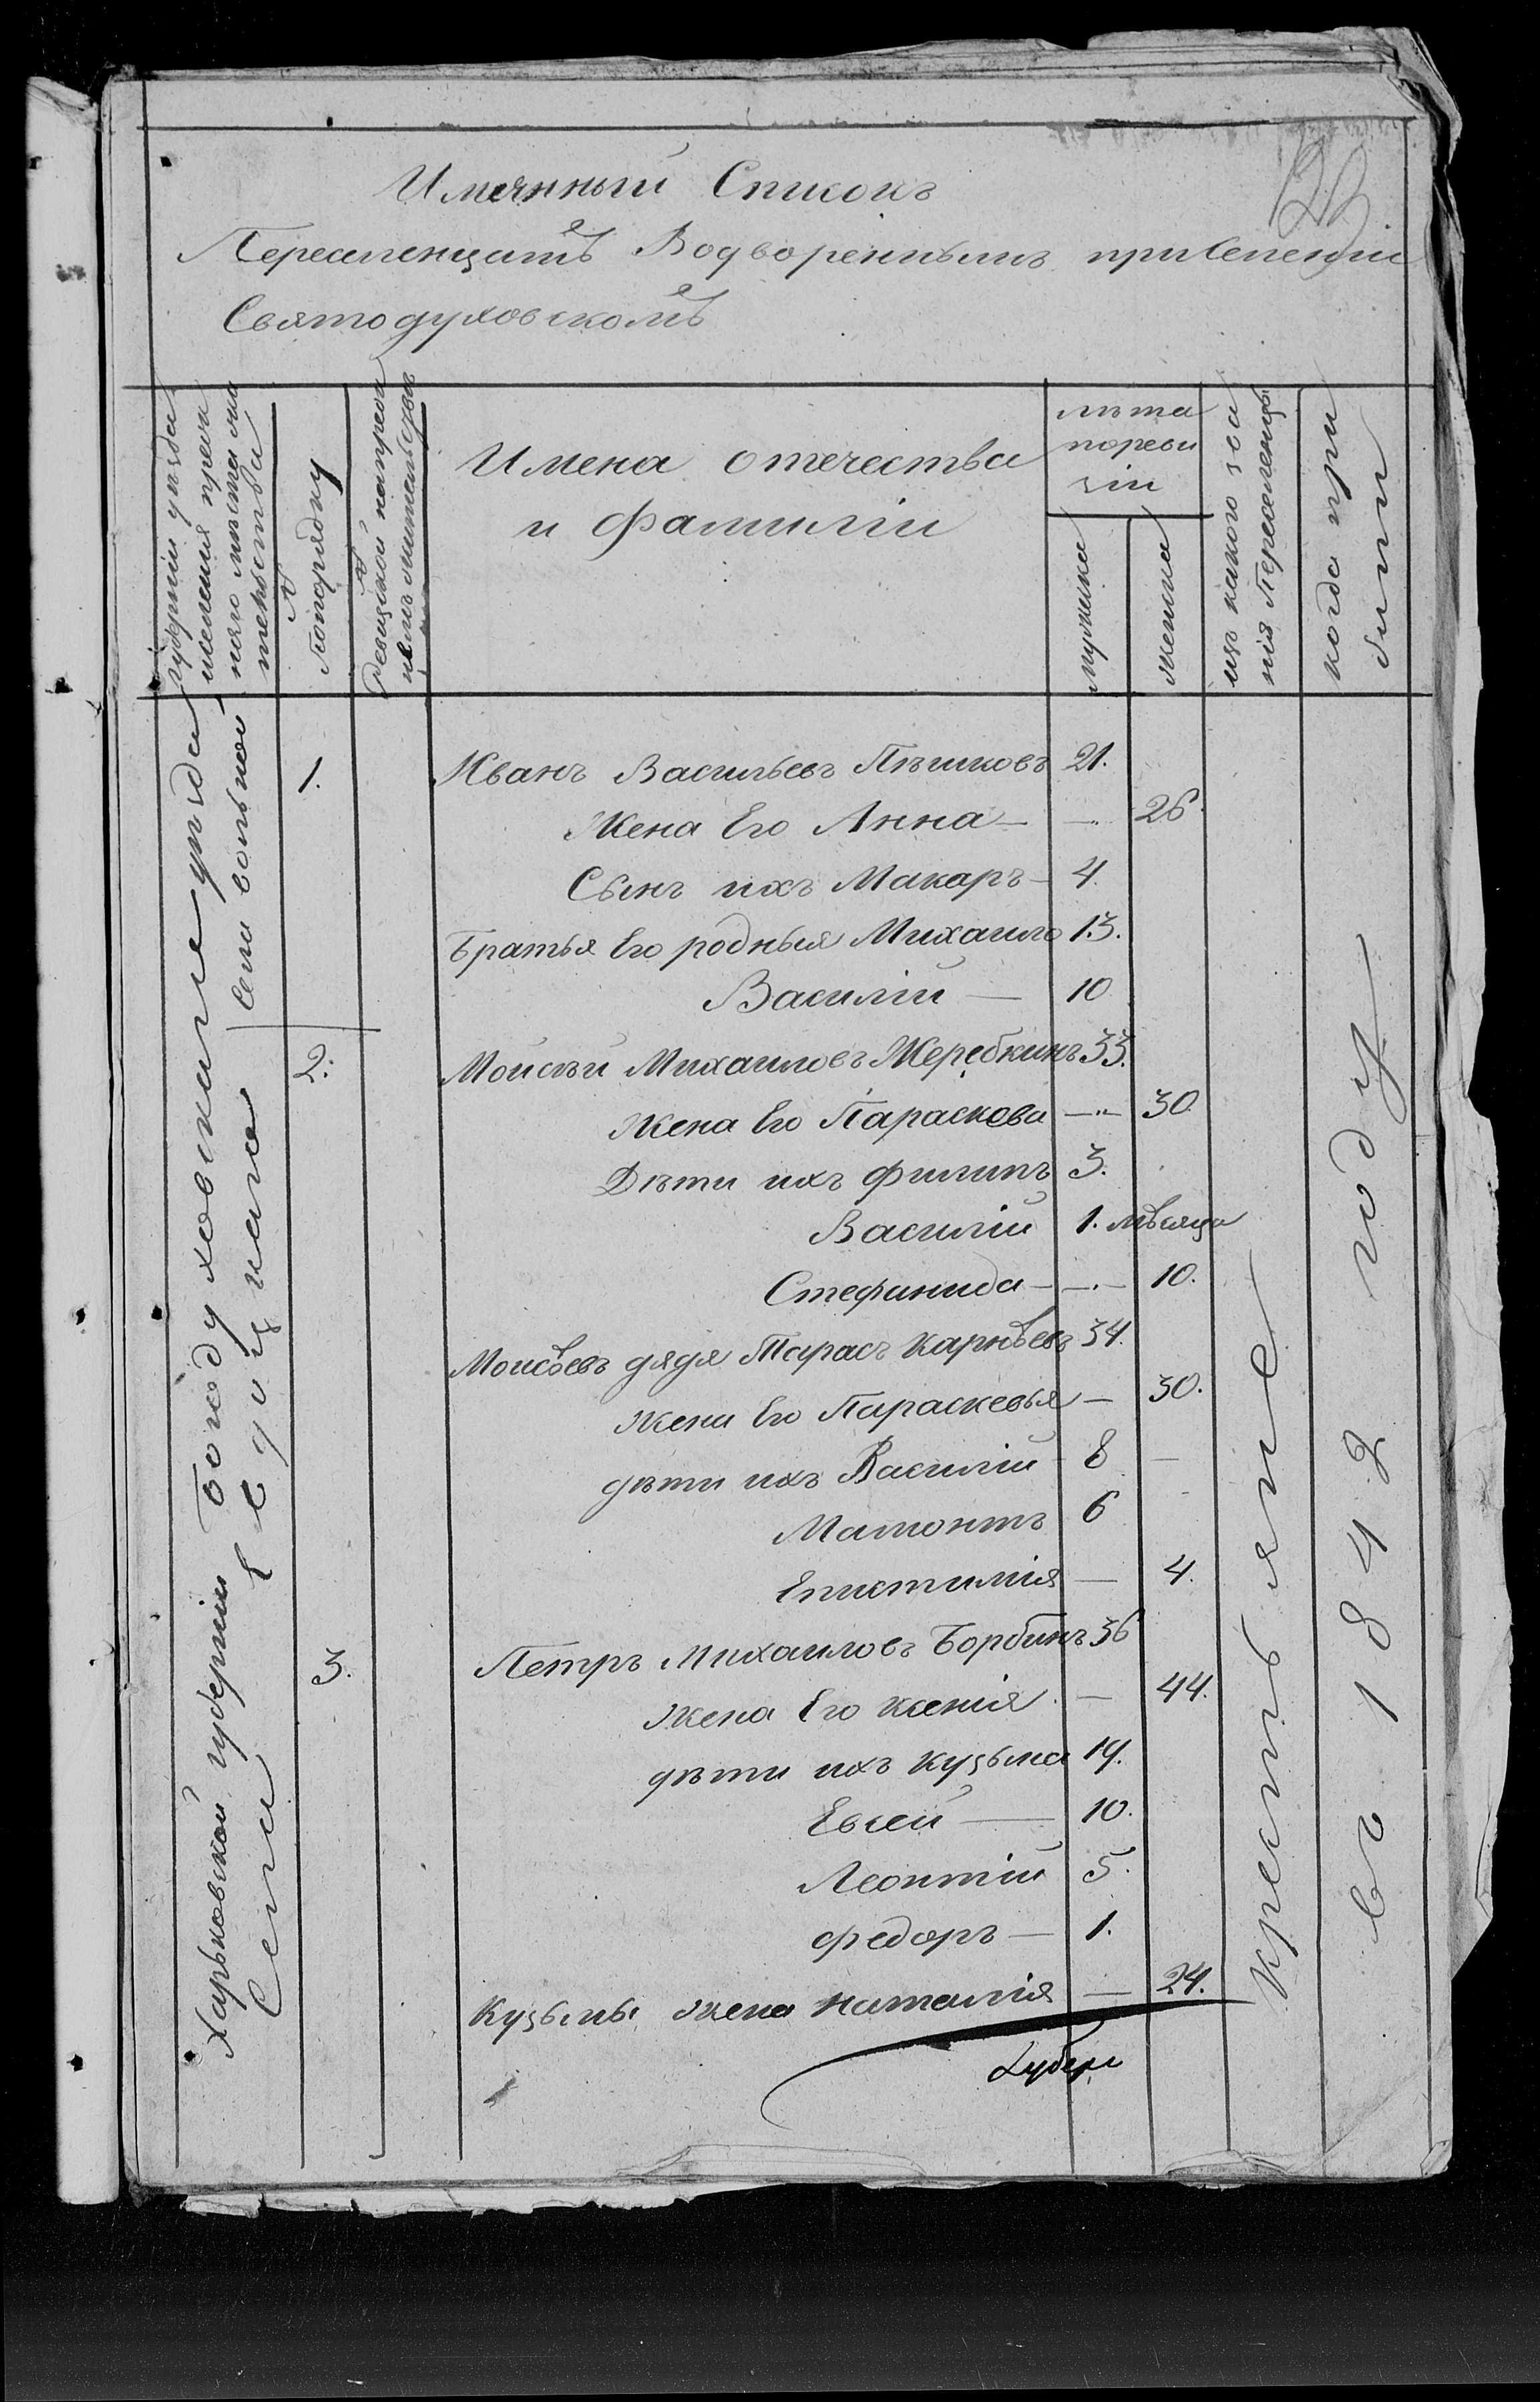 Имянный Списокъ
Переселенцамъ Водвореннымъ при Селеніи
Святодуховскомъ
губерніи уезда
селенія преж
няго мѣста жи
тельства
№ попорядку
№ Ревизской напреж
немъ жительствѣ
Имена отечества
и фамиліи
лѣта
по реви
зіи
мужеска
женска
изъ какого зва
нія Переселенцы
когда при
были
Харьковской губерніи
Села
Села Вольной
крестьяне
въ 1842 году
1. Иванъ Васильевъ Пѣшковъ 21.
Жена Его Анна — 26.
Сынъ ихъ Макаръ 4.
Братья Его родныя Михаило 13.
Василій — 10
2. Моисѣй Михаиловъ Жеребкинъ 33.
Жена Его Параскева — 30.
Дѣти ихъ Филипъ 3.
Василій 1. мѣсяца
Стефанида — 10.
Моисѣевъ дядя Тарасъ Карнѣевъ 34.
Жена Его Параскевья — 30.
дѣти ихъ Василій 8 —
Мамонтъ 6
Епистимія — 4.
3. Петръ Михаиловъ Борбинъ 36
Жена Его Ксенія — 44.
дѣти ихъ Кузьма 19.
Евсей — 10.
Леонтій 5.
Федоръ — 1.
Кузьмы жена Наталія — 24.